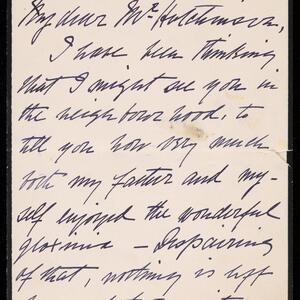 My dear Mr. Hutchinson,
I have been thinking
that I might see you in
the neighbourhood, to
tell you how very much
both my father and my-
self enjoyed the wonderful
gloxinia — Despairing
of that, nothing is left